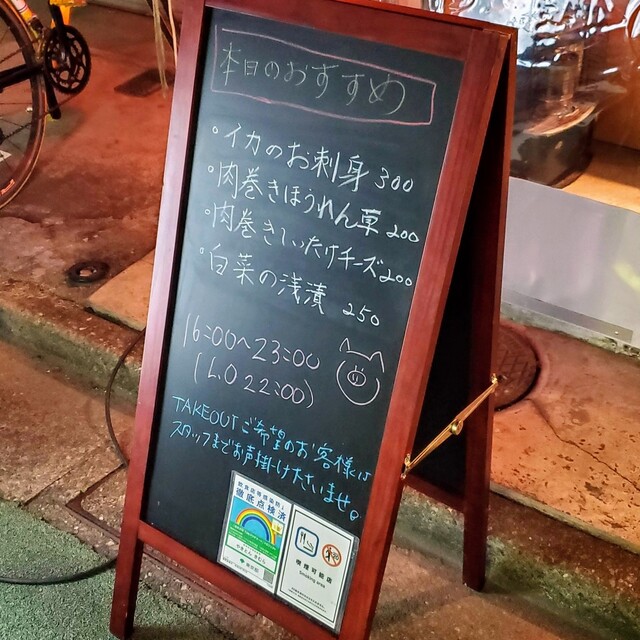 本日のおすすめ
・イカのお刺身 300
・肉巻きほうれん草 200
・肉巻きしいたけチーズ 200
・白菜の浅漬 250
16:00〜23:00
(L.O 22:00)
TAKEOUTご希望のお客様は
スタッフまでお声掛けくださいませ。
徹底点検済
喫煙可能店
Smoking area